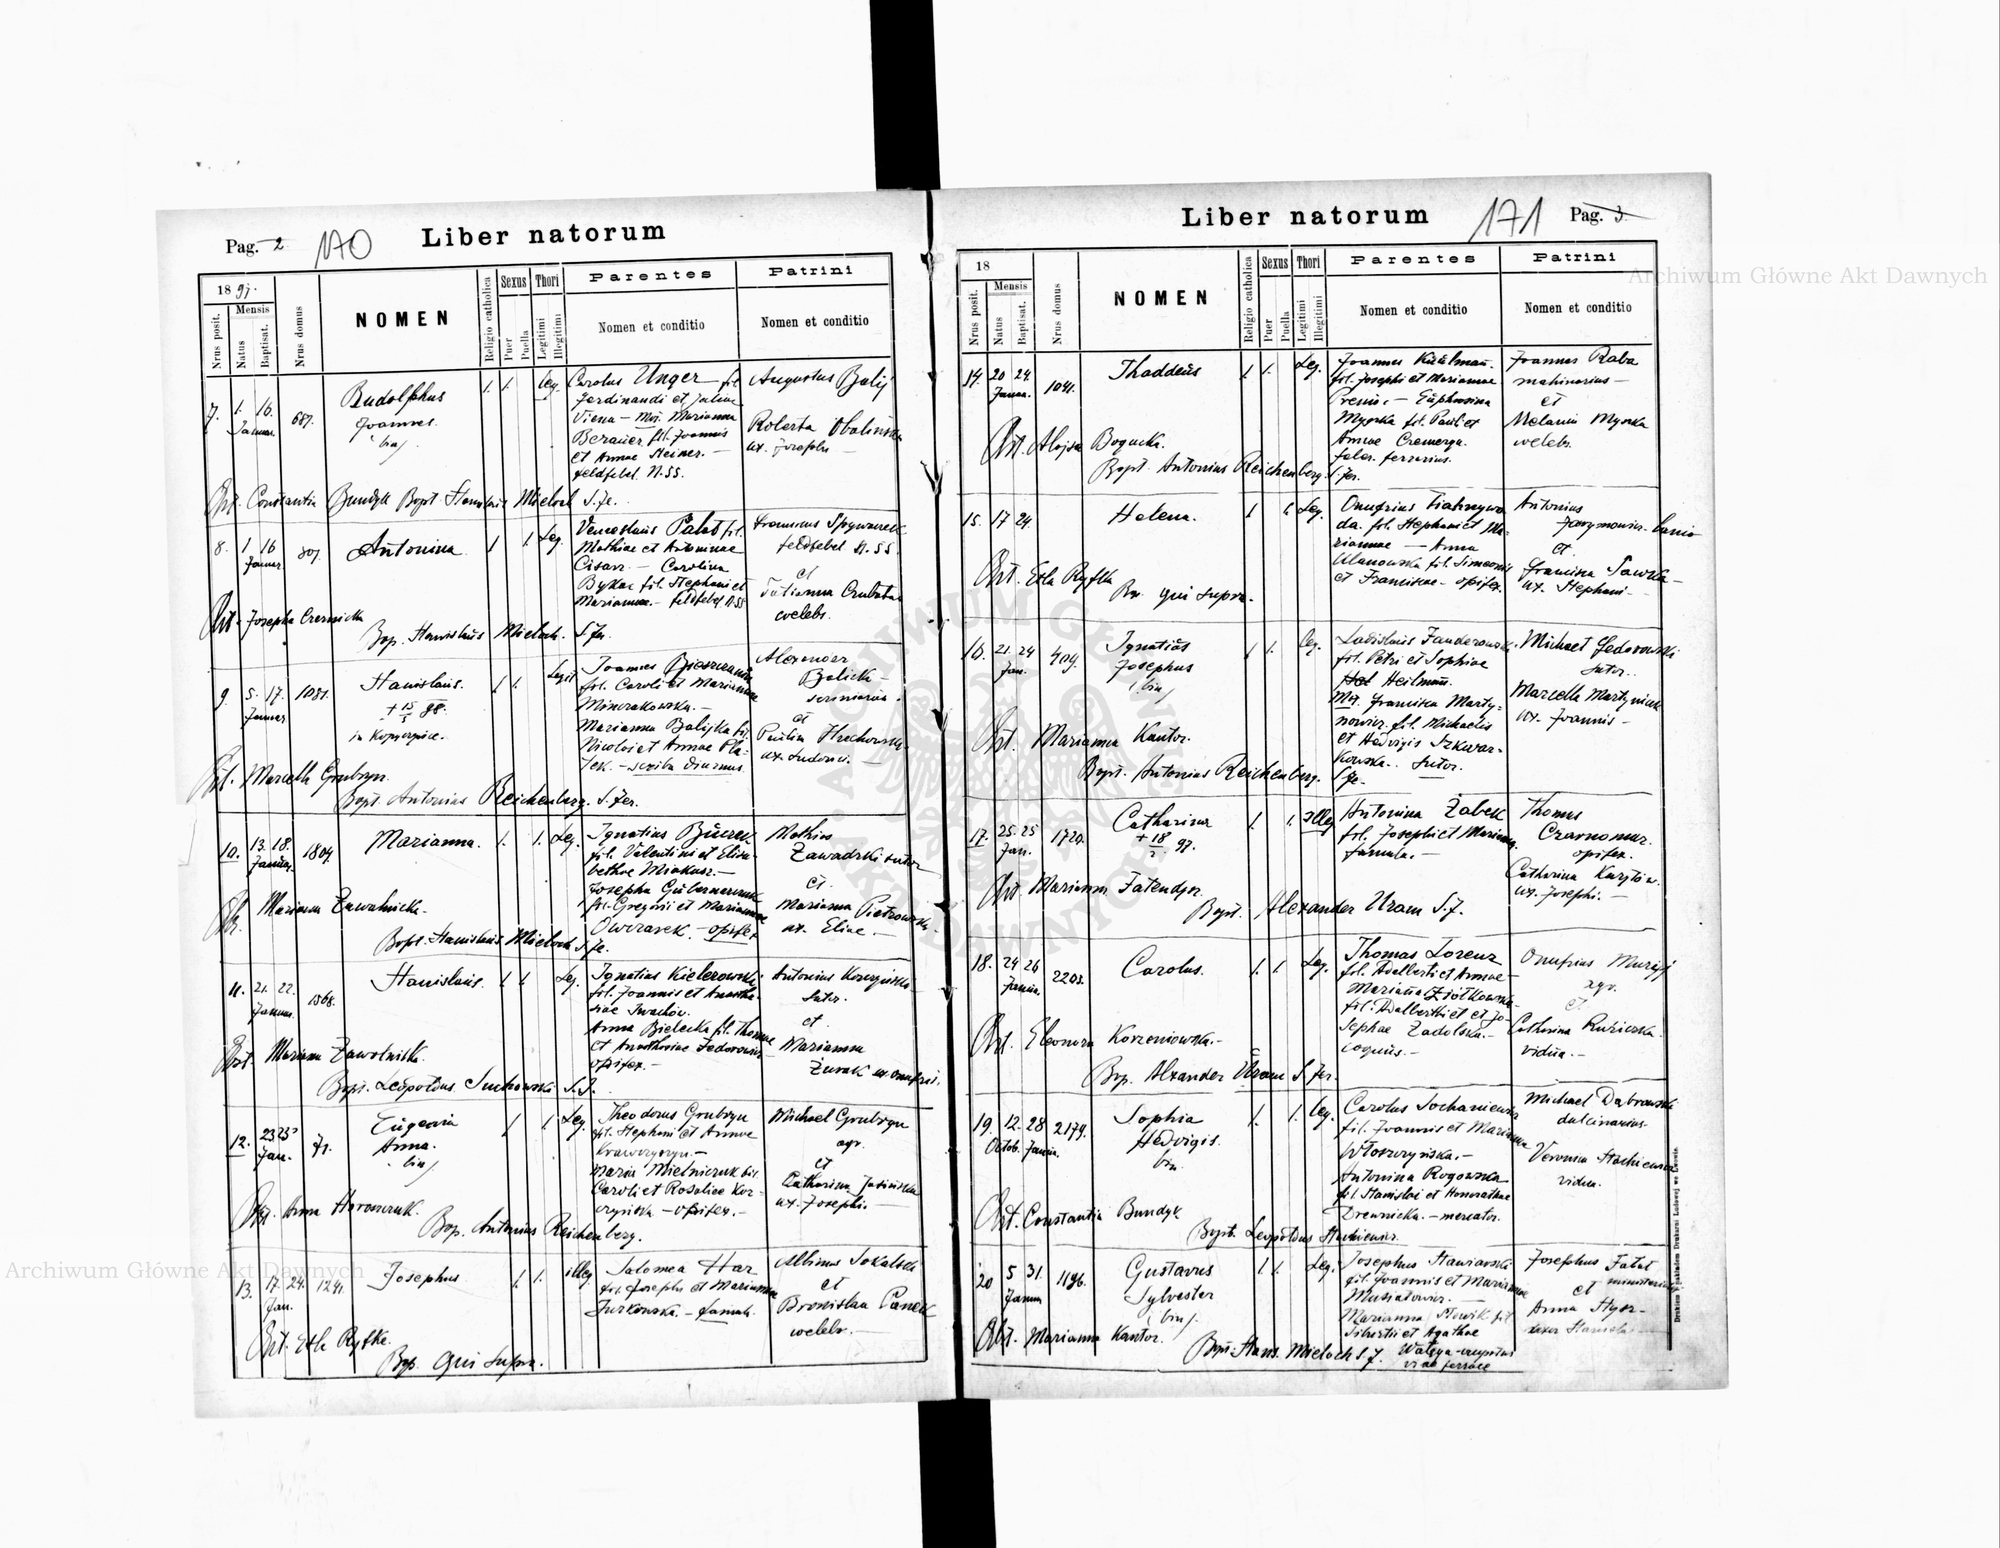 Pag. 2 170 Liber natorum
18 97.
Mensis
Nrus posit.
Natus
Baptisat.
Nrus domus
NOMEN
Religio catholica
Sexus
Puer
Puella
Thori
Legitimi
Illegitimi
Parentes
Nomen et conditio
Patrini
Nomen et conditio
7. 1. 16. Januar. 687.
Rudolphus
Joannes.
bin/
1. 1. Leg.
Carolus Unger fil.
Ferdinandi et Juliae
Marianna
Berauer fil. Joannis
et Annae Steiner. —
feldfebel N. 55.
Augustus Balij
Roberta Obalińska
ux. Josephi —
Obst. Constantia Bundyk Bapt. Stanislaus Mieloch S. Je.
8. 1 16 Januar 307.
Antonina
1 1 Leg.
Venceslaus Palat fil.
Mathiae et Antoninae
Cisarz. — Carolina
Bykar fil. Stephani et
Mariannae. — feldfebel N. 55
Franciscus
feldfebel N. 55.
et
Tatianna
coelebs.
Obst. Josepha Czernicka
Bap. Stanislaus Mieloch. S. Jes.
9. 5. 17. Januar 1081.
Stanislaus.
+ 15/5 98.
in Kopyczyńce.
1 1. Legit
Joannes
fil. Caroli et Mariannae
Minczakowska. —
Marianna Balijka fil.
Nicolai et Annae Pla-
szek. — scriba diurnus
Alexander
Balicki —
scriniarius
et
Paulina Hrechowska
ux. Ludovici. —
Obst. Marcella Grubryn.
Bapt. Antonius Reichenberg. S. Jes.
10. 13. 18. Januar. 1804.
Marianna.
1. 1. Leg.
Ignatius Burek
fil. Valentini et Elisa-
bethae Miakusz. —
Josepha
fil. Gregorii et Mariannae
Owczarek. — opifex
Mathias
Zawadzki sutor
et.
Marianna Pietrowska
ux. Eliae. —
Obst. Marianna Zawalnicka.
Bapt. Stanislaus Mieloch S. Je.
11. 21. 22. Januar. 1568.
Stanislaus.
1 1 Leg
Ignatius Kielerowski
fil. Joannis et Anasta-
siae Iwachów.
Anna Bielecka fil. Thomae
et Anastasiae Fedorowicz
opifex. —
Antonius Korczyński
sutor.
et.
Marianna
Żurak ux Onufrii.
Obst. Marianna Zawalnicka.
Bapt. Leopoldus Suchowski S. J.
12. 23 25 Jan. 71.
Eugenia
Anna.
bin/
1 1 Leg.
Theodorus Grubryn
fil. Stephani et Annae
Krawczyszyn. —
Maria Mielniczuk fil.
Caroli et Rosaliae Kor-
czyńska — opifex. —
Michael Grubryn
agr.
et
Catharina Jasińska
ux. Josephi. —
Obst. Anna Haraszczuk.
Bap. Antonius Reichenberg.
13. 17. 24. Jan. 1241.
Josephus
1. 1. illeg
Salomea Har
fil. Josephi et Mariannae
Jurkowska. — famula.
Albinus Sokalski
et
Bronislaa Panek
coelebs. —
Obst. Etla Ryfka.
Bap. qui supra.
Liber natorum 171 Pag. 3
18
Mensis
Nrus posit.
Natus
Baptisat.
Nrus domus
NOMEN
Religio catholica
Sexus
Puer
Puella
Thori
Legitimi
Illegitimi
Parentes
Nomen et conditio
Patrini
Nomen et conditio
14. 20 24. Januar. 1041.
Thaddeus
1 1. Leg.
Joannes
fil. Josephi et Mariannae
— Euphrosina
Myszka fil. Pauli et
Annae Cremerga.
faber ferrarius.
Joannes Raba
machinarius —
et
Melania Myszka
coelebs.
Obst. Aloisa Bogucka.
Bapt. Antonius Reichenberg. S. Jes.
15. 17 24.
Helena.
1 1. Leg.
Onufrius
da. fil. Stephani et Ma-
riannae — Anna
Ulanowska fil. Simeonis
et Franciscae — opifex.
Antonius
et.
Francisca Sawska —
ux. Stephani —
Obst. Etla Ryfka
Bap. qui supra.
16. 21. 24 Jan. 409.
Ignatius
Josephus
bin/
1 1. Leg.
Ladislaus Fanderowski
fil. Petri et Sophiae
Heilman.
Francisca Marty-
nowicz fil. Michaelis
et Hedvigis Szkwar-
kowska. sutor.
Michael Fedorowski
sutor.
Marcella Martyniuk
ux. Joannis —
Obst. Marianna Kantor.
Bapt. Antonius Reichenberg. S Je.
17. 25. 25 Jan. 1720.
Catharina
+ 18/2 97.
1. 1. Illeg
Antonina Żabek
fil. Josephi et Mariannae
famula. —
Thomas
Czarnomur.
opifex.
Catharina
ux. Josephi. —
Obst. Marianna Fatendyn.
Bapt. Alexander Uram S. J.
18. 24 26 Januar. 2203.
Carolus.
1. 1. Leg.
Thomas Lorenz
fil. Adalberti et Annae —
Marianna Ziółkowska
fil. Adalberti et Jo-
sephae Zadolska. —
coquus. —
Onufrius
agr.
et
Catharina Ruzicka
vidua. —
Obst. Eleonora Korzeniowska. —
Bap. Alexander Uram S. Jes.
19. 12. 28 Octob. Januar. 2179.
Sophia
Hedvigis.
bin.
1. 1. Leg.
Carolus Sochaniewicz
fil. Joannis et Marianna
Włoszczyńska. —
Antonina Rogowska
fil. Stanislai et Honorathae
Drewnicka. — mercator.
Michael Dąbrowski
dulcinarius.
Veronica Stachiewicz
vidua.
Obst. Constantia Bundyk
Bapt. Leopoldus Stachiewicz.
20 5 31. Januar 1196.
Gustavus
Sylvester
bin/.
1. 1. Leg.
Josephus Staniavski
fil. Joannis et Mariannae
Musiatowicz. —
Marianna Słowik fil
Silvestri et Agathae
Watęga
viae ferreae
Josephus Fatat
et
Anna
Obst. Marianna Kantor.
Bapt. Stans. Mieloch S J.
Drukiem i nakładem Drukarni Ludowej we Lwowie.
Archiwum Główne Akt Dawnych
Archiwum Główne Akt Dawnych
ARCHIWUM GŁÓWNE AKT DAWNYCH